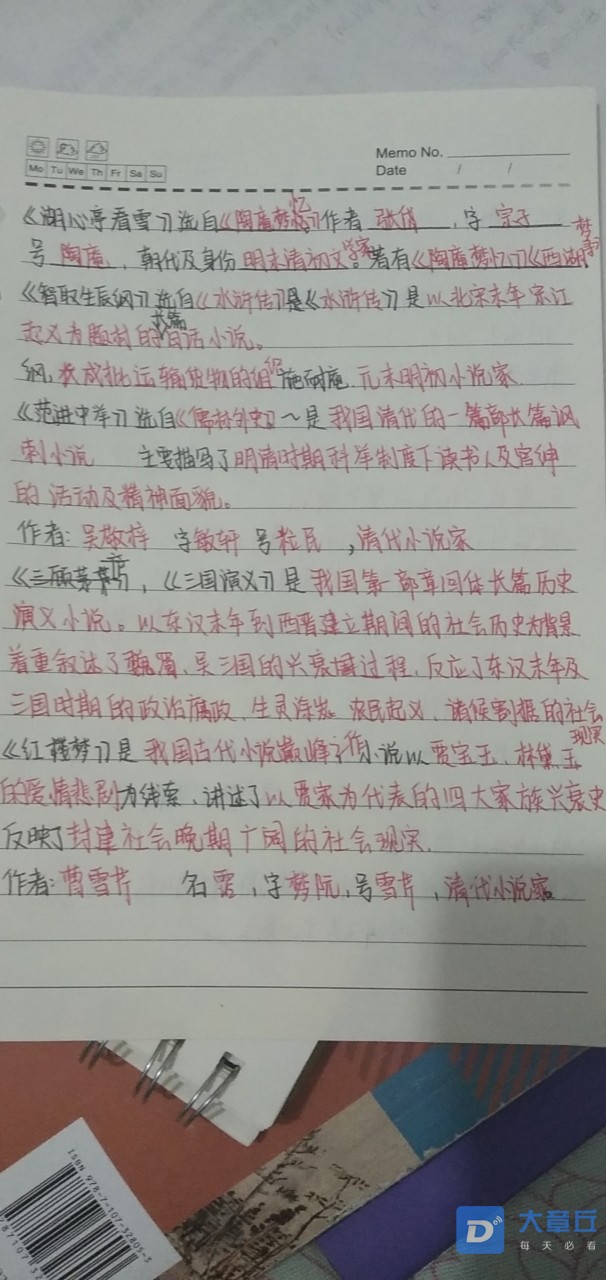 Memo No.
Mo Tu We Th Fr Sa Su
Date / /
《湖心亭看雪》选自《陶庵梦忆》作者 张岱 , 字 宗子
号 陶庵 , 朝代及身份 明末清初文学家。著有《陶庵梦忆》《西湖梦寻》
《智取生辰纲》选自《水浒传》是《水浒传》是以北宋末年宋江
起义为题材的长篇白话小说。
纲,大成批运输货物的组织 施耐庵 元末明初小说家
《范进中举》选自《儒林外史》~是我国清代的一篇部长篇讽
刺小说 主要描写了明清时期科举制度下读书人及官绅
的活动及精神面貌。
作者: 吴敬梓 字敏轩 号粒民 ,清代小说家
《三顾茅庐》,《三国演义》是我国第一部章回体长篇历史
演义小说。以东汉末年到西晋建立期间的社会历史为背景
着重叙述了魏蜀、吴三国的兴衰过程,反应了东汉末年及
三国时期的政治腐政,生灵涂炭 农民起义,诸侯割据的社会现实
《红楼梦》是我国古代小说巅峰之作小说以贾宝玉、林黛玉
的爱情悲剧为线索,讲述了以贾家为代表的四大家族兴衰史
反映了封建社会晚期广阔的社会现实.
作者:曹雪芹 名霑,字梦阮,号雪芹,清代小说家
ISBN 978-7-107-32805-3
大章丘
每天必看